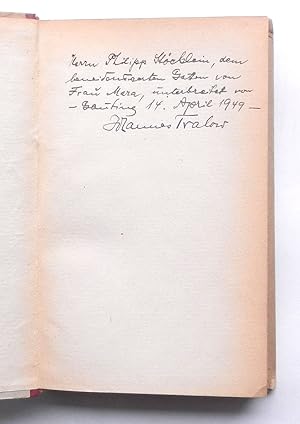 Herrn Philipp Stöcklein, dem
beneidenswerten Gatten von
Frau Mara, unterbreitet von
- Gauting 14. April 1949 -
Johannes Tralow